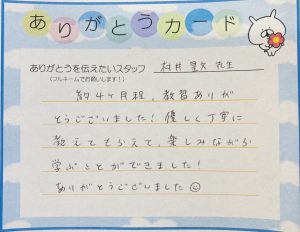 ありがとうカード
ありがとうを伝えたいスタッフ 村井 文 先生
(フルネームでお願いします！)
約4ヶ月程、教習ありが
とうございました！優しく丁寧に
教えてもらえて、楽しみながら
学ぶことができました！
ありがとうございました☺